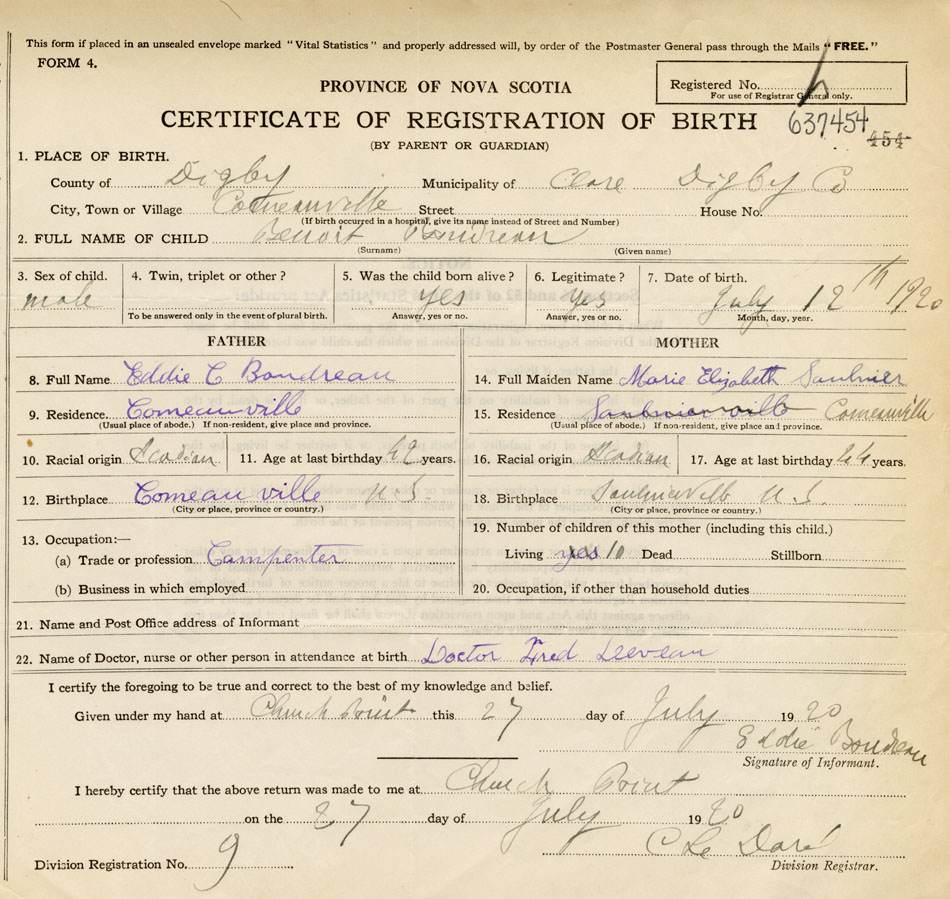 This form if placed in an unsealed envelope marked "Vital Statistics" and properly addressed will, by order of the Postmaster General pass through the Mails "FREE."
FORM 4.
PROVINCE OF NOVA SCOTIA
Registered No.
For use of Registrar General only.
CERTIFICATE OF REGISTRATION OF BIRTH 637454 454
(BY PARENT OR GUARDIAN)
1. PLACE OF BIRTH.
County of Digby Municipality of Clare Digby Co
City, Town or Village Comeauville Street House No.
(If birth occurred in a hospital, give its name instead of Street and Number)
2. FULL NAME OF CHILD Benoit Boudreau
(Surname) (Given name)
3. Sex of child. 4. Twin, triplet or other? 5. Was the child born alive? 6. Legitimate? 7. Date of birth.
male yes yes July 12th 1920
To be answered only in the event of plural birth. Answer, yes or no. Answer, yes or no. Month, day, year.
FATHER MOTHER
8. Full Name Eddie C Boudreau 14. Full Maiden Name Marie Elizabeth Saulnier
9. Residence Comeauville 15. Residence Saulnierville Comeauville
(Usual place of abode.) If non-resident, give place and province. (Usual place of abode.) If non-resident, give place and province.
10. Racial origin Acadian 11. Age at last birthday years. 16. Racial origin Acadian 17. Age at last birthday 44 years.
12. Birthplace Comeauville N.S. 18. Birthplace Saulnierville N.S.
(City or place, province or country.) (City or place, province or country.)
13. Occupation:— 19. Number of children of this mother (including this child.)
(a) Trade or profession Carpenter Living yes 10 Dead Stillborn
(b) Business in which employed 20. Occupation, if other than household duties
21. Name and Post Office address of Informant
22. Name of Doctor, nurse or other person in attendance at birth Doctor Fred Deveau
I certify the foregoing to be true and correct to the best of my knowledge and belief.
Given under my hand at Church Point this 27 day of July 1920
Eddie Boudreau
Signature of Informant.
I hereby certify that the above return was made to me at Church Point
on the 27 day of July 1920
C Le
Division Registration No. 9 Division Registrar.